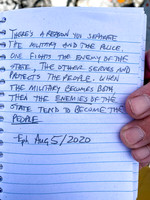 THERE'S A REASON YOU SEPARATE
THE MILITARY AND THE POLICE.
ONE FIGHTS THE ENEMY OF THE
STATE, THE OTHER SERVES AND
PROTECTS THE PEOPLE. WHEN
THE MILITARY BECOMES BOTH,
THEN THE ENEMIES OF THE
STATE TEND TO BECOME THE
PEOPLE.
Aug 5/2020